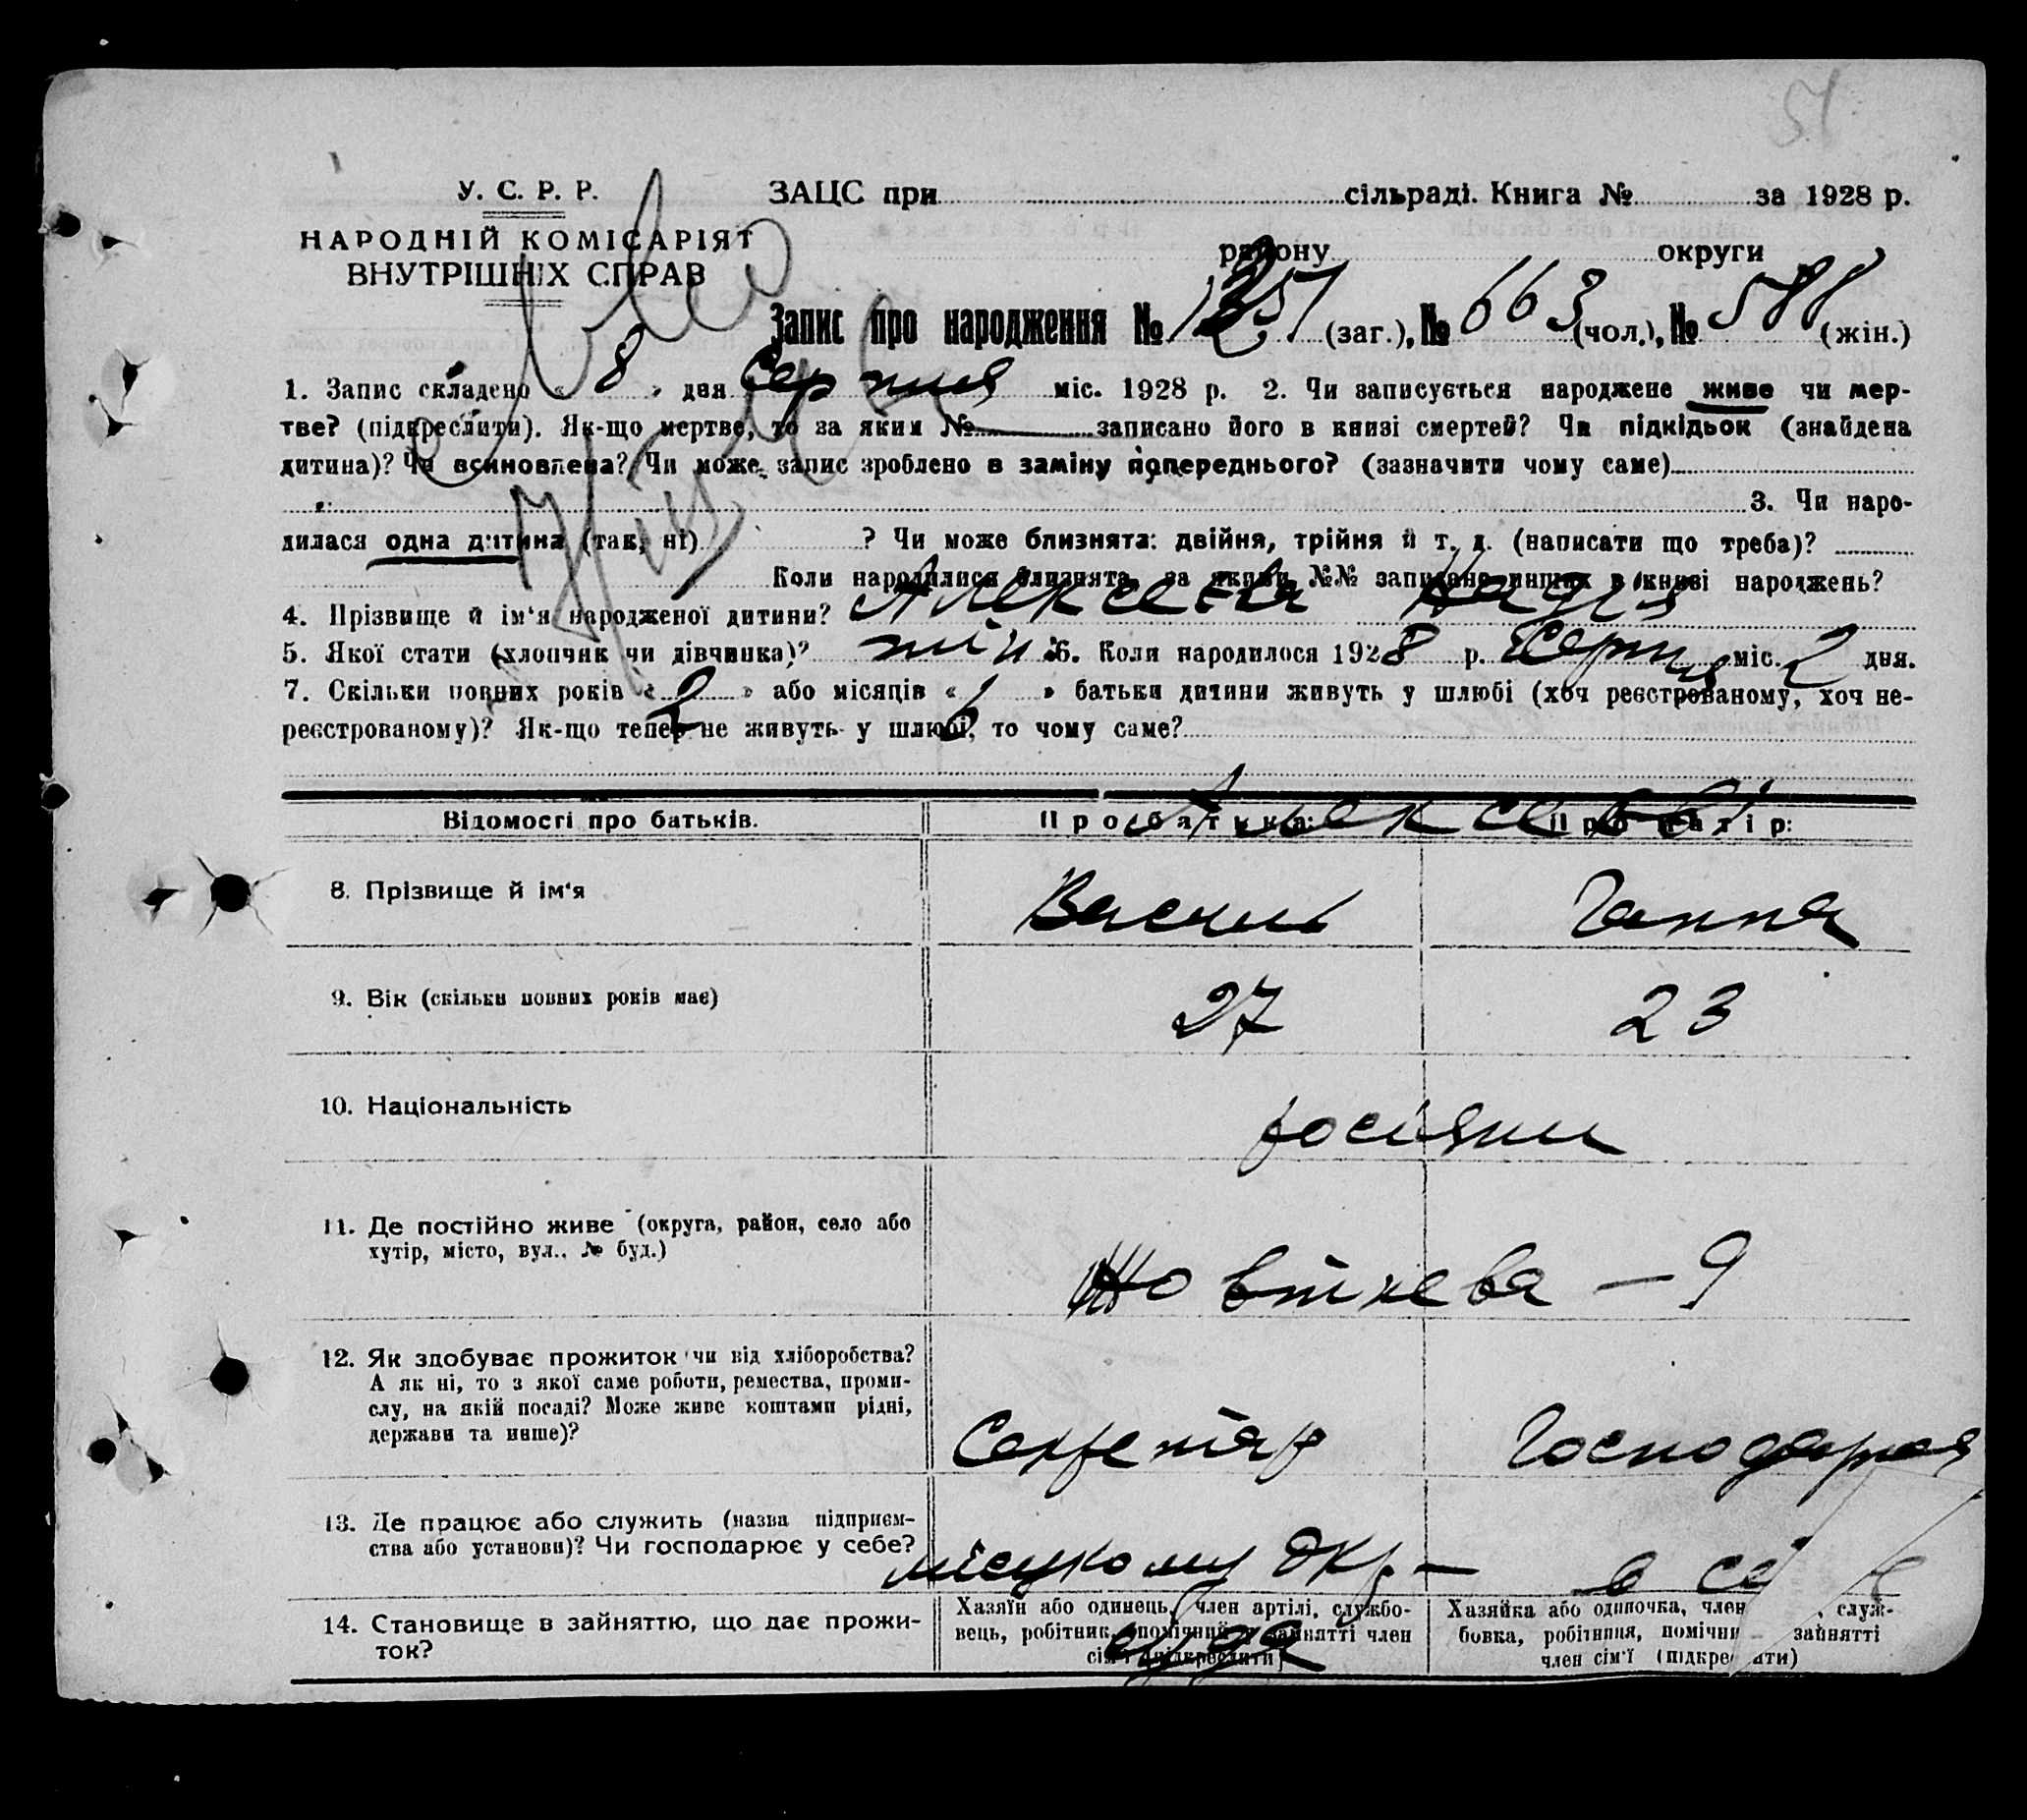 51
У. С. Р. Р.
НАРОДНІЙ КОМІСАРІЯТ
ВНУТРІШНІХ СПРАВ
ЗАЦС при сільраді. Книга № за 1928 р.
району округи
Запис про народження № 1251 (заг.), № 663 (чол.), № 588 (жін.)
1. Запис складено « 8 » дня Серпня міс. 1928 р. 2. Чи записується народжене живе чи мер-
тве? (підкреслити). Як-що мертве, то за яким № записано його в книзі смертей? Чи підкідьок (знайдена
дитина)? Чи всиновлена? Чи може запис зроблено в заміну попереднього? (зазначити чому саме)
3. Чи наро-
дилася одна дитина (так, ні) ? Чи може близнята: двійня, трійня й т. д. (написати що треба)?
Коли народилися близнята, за якими №№ записано инших в книзі народжень?
4. Прізвище й ім'я народженої дитини? Алексеева Надія
5. Якої стати (хлопчик чи дівчинка)? жін. 6. Коли народилося 1928 р. Серпня міс. 2 дня.
7. Скільки повних років « 2 » або місяців « » батьки дитини живуть у шлюбі (хоч реєстрованому, хоч не-
реєстрованому)? Як-що тепер не живуть у шлюбі, то чому саме?
Відомості про батьків. Про батька: Про матір:
Алексеєви
8. Прізвище й ім'я Василь Ганна
9. Вік (скільки повних років має) 27 23
10. Національність росіяни
11. Де постійно живе (округа, район, село або
хутір, місто, вул.. № буд.) Жовтнева — 9
12. Як здобуває прожиток чи від хліборобства?
А як ні, то з якої саме роботи, ремества, проми-
слу, на якій посаді? Може живе коштами рідні,
держави та инше)? Секретар Господарка
13. Де працює або служить (назва підприєм-
ства або установи)? Чи господарює у себе? місцкому Окр — в се
суда
14. Становище в зайняттю, що дає прожи-
ток?
Хазяїн або одинець, член артілі, службо-
вець, робітник, помічний в зайнятті член
сім'ї (підкреслити)
Хазяйка або одиночка, член , служ-
бовка, робітниця, помічни зайнятті
член сім'ї (підкре ати)